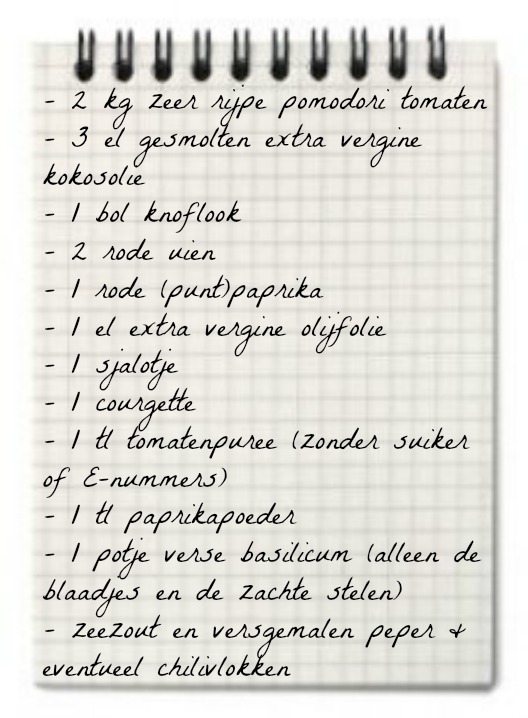 - 2 kg zeer rijpe pomodori tomaten
- 3 el gesmolten extra vergine
kokosolie
- 1 bol knoflook
- 2 rode uien
- 1 rode (punt)paprika
- 1 el extra vergine olijfolie
- 1 sjalotje
- 1 courgette
- 1 tl tomatenpuree (zonder suiker
of E-nummers)
- 1 tl paprikapoeder
- 1 potje verse basilicum (alleen de
blaadjes en de zachte stelen)
- zeezout en versgemalen peper +
eventueel chilivlokken